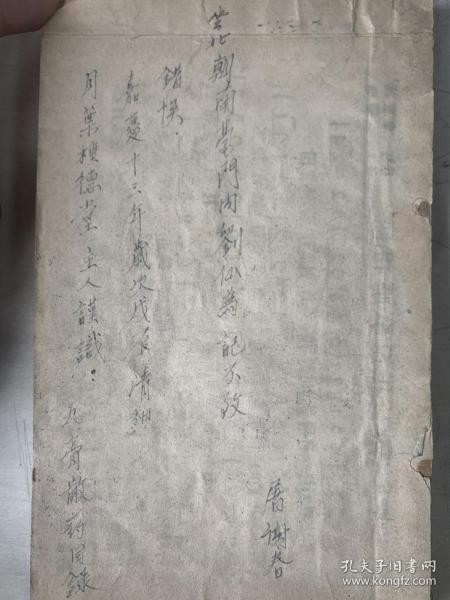 朝南墓門內劉仙為記不致
錯悞．
嘉慶十三年歲次戊辰清和
月葉種德堂主人謹識：
丸膏散葯目錄
屠謝春
孔夫子旧书网
www.kongfz.com